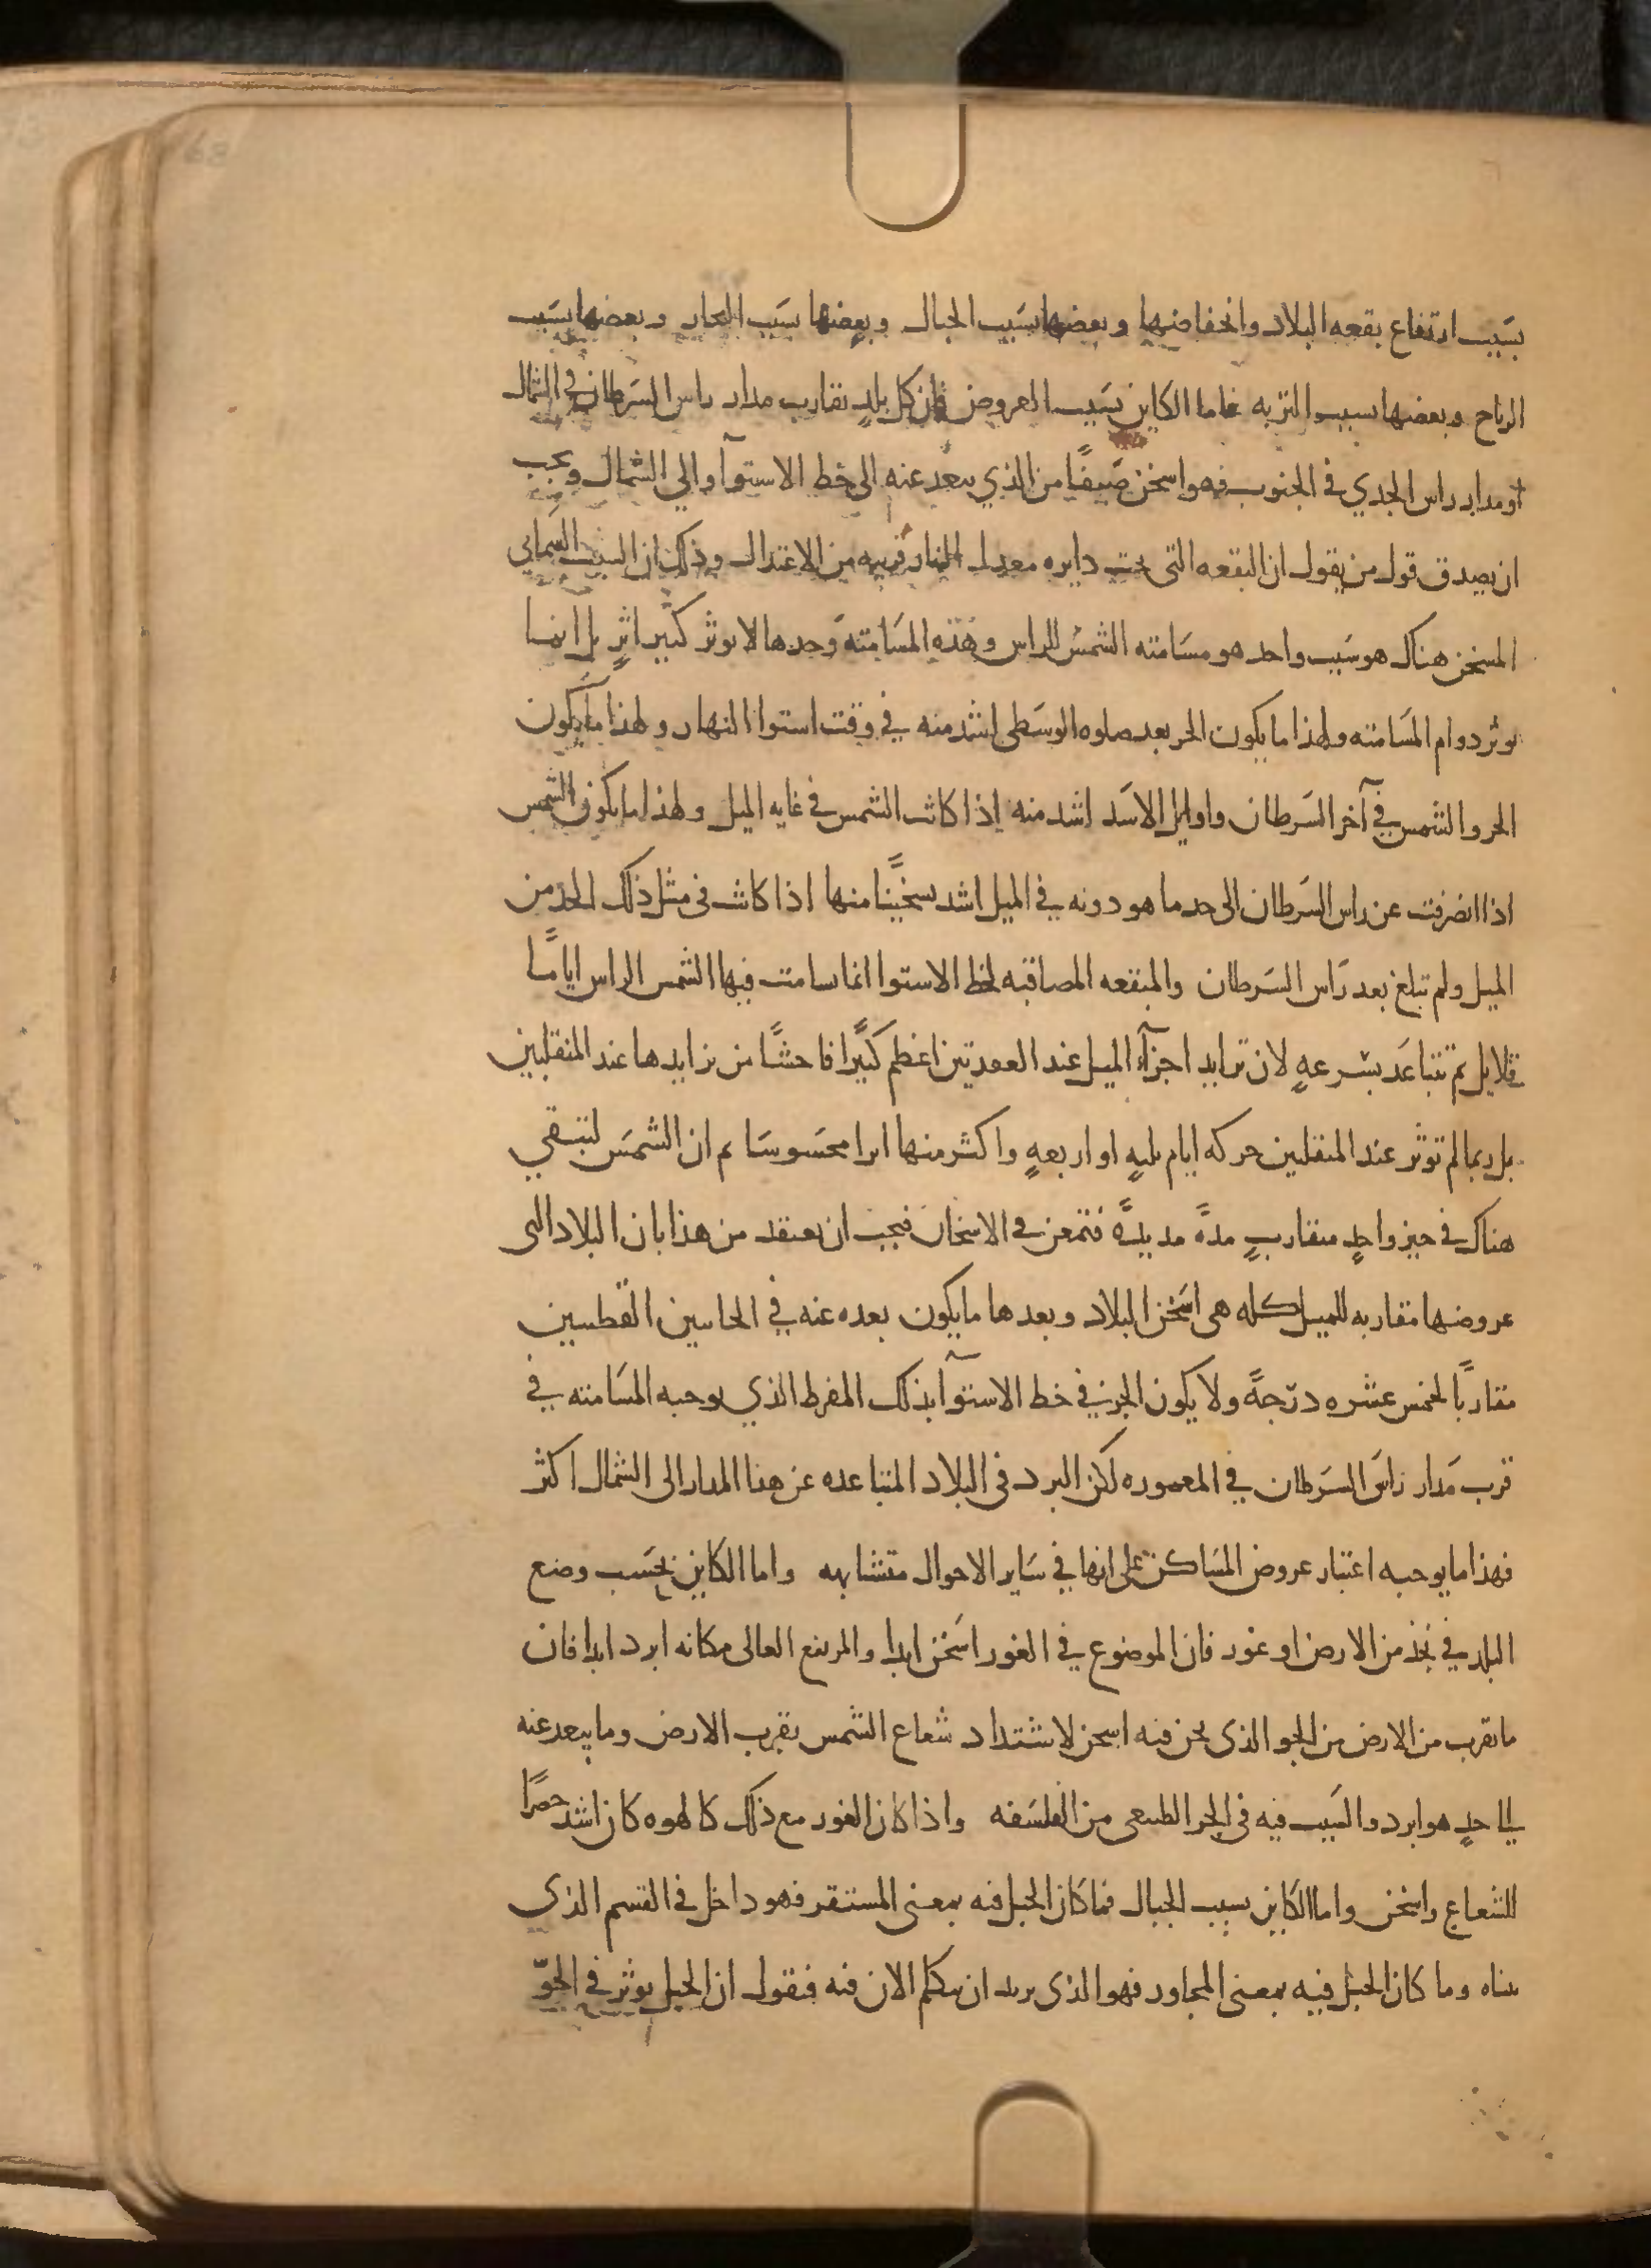 بسبب ارتفاع بقعه البلاد وانخفاضها وبعضها بسبب الجبال وبعضها بسبب البحار وبعضها بسبب
الرياح وبعضها بسبب التربه فاما الكاين بسبب العروض فان كل بلدٍ يقارب مدار راس السرطان في الشمال
او مدار راس الجدي في الجنوب فهو اسخن صيفًا من الذي يبعد عنه الى خط الاستوآ والي الشمال ويجب
ان يصدق قول من يقول ان البقعه التى تحت دايره معدل النهار قريبه من الاعتدال وذلك ان السبب السمايي
المسخن هناك هو سبب واحد هو مسامته الشمس للراس وهذه المسامته وحدها لا توثر كثير اثرٍ بل انما
يوثر دوام المسامته ولهذا ما يكون الحر بعد صلوه الوسطى اشد منه في وقت استوا النهار ولهذا ما يكون
الحر والشمس في آخر السرطان واوايل الاسد اشد منه اذا كانت الشمس في غايه الميل ولهذا ما يكون الشمس
اذا انصرفت عن راس السرطان الى حد ما هو دونه في الميل اشد تسخينًا منها اذا كانت فى مثل ذلك الحد من
الميل ولم تبلغ بعد راس السرطان والبقعه المصاقبه لخط الاستوا انما تسامت فيها الشمس الراس ايامًا
قلايل ثم تتباعد بسرعهٍ لان تزايد اجزآء الميل عند العقدتين اعظم كثيرًا فاحشًا من تزايدها عند المنقلبين
بل ربما لم توثر عند المنقلبين حركه ايام ثلثهٍ او اربعهٍ واكثر منها اثرا محسوسا ثم ان الشمس لتبقي
هناك في حيز واحدٍ متقاربٍ مدةً مديدةً فتمعن في الاسخان فيجب ان يعتقد من هذا بان البلاد التى
عروضها مقاربه للميل كله هى اسخن البلاد وبعدها ما يكون بعده عنه في الجانبين القطبيين
مقاربًا لخمس عشره درجةً ولا يكون الحر في خط الاستوآ بذلك المفرط الذي يوجبه المسامته في
قرب مدار راس السرطان في المعموره لكن البرد فى البلاد المتباعده عن هذا المدار الى الشمال اكثر
فهذا ما يوجبه اعتبار عروض المساكن على انها في ساير الاحوال متشابهه واما الكاين بحسب وضع
البلد في نجد من الارض او غور فان الموضوع في الغور اسخن ابدا والمرتفع العالى مكانه ابرد ابدا فان
ما يقرب من الارض من الجو الذى نحن فيه اسخن لاشتداد شعاع الشمس بقرب الارض وما يبعد عنه
الى حدٍ هو ابرد والسبب فيه فى الجز الطبيعى من الفلسفه واذا كان الغور مع ذلك كالهوه كان اشد حصرًا
للشعاع واسخن واما الكاين بسبب الجبال فما كان الجبل فيه بمعنى المستقر فهو داخل في القسم الذى
بيناه وما كان الجبل فيه بمعنى المجاور فهو الذى نريد ان نتكلم الان فيه فنقول ان الجبل يوثر في الجوّ